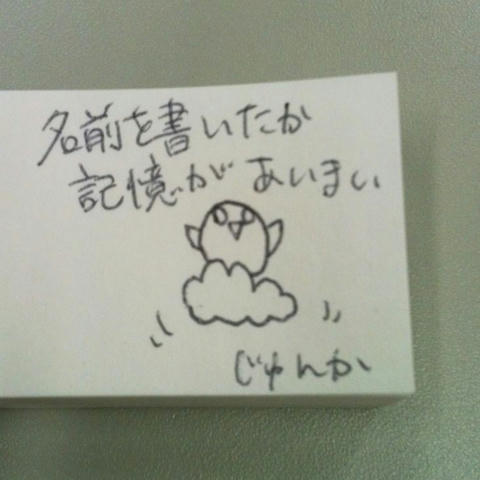 名前を書いたか
記憶があいまい
じゅんか